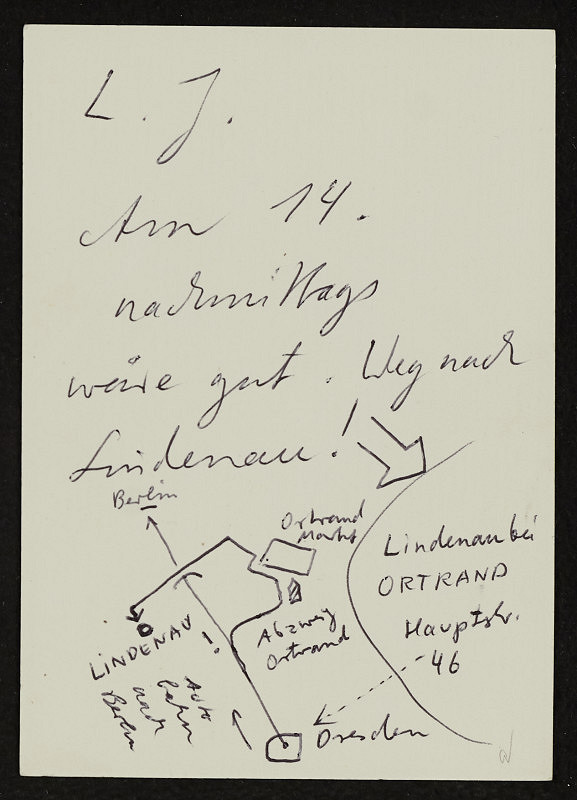 L. J.
Am 14.
nachmittags
wäre gut. Weg nach
Lindenau!
Berlin
Ortrand
Markt
Lindenau bei
ORTRAND
Hauptstr.
46
Abzweig
Ortrand
LINDENAU!
Auto
bahn
nach
Berlin
Dresden